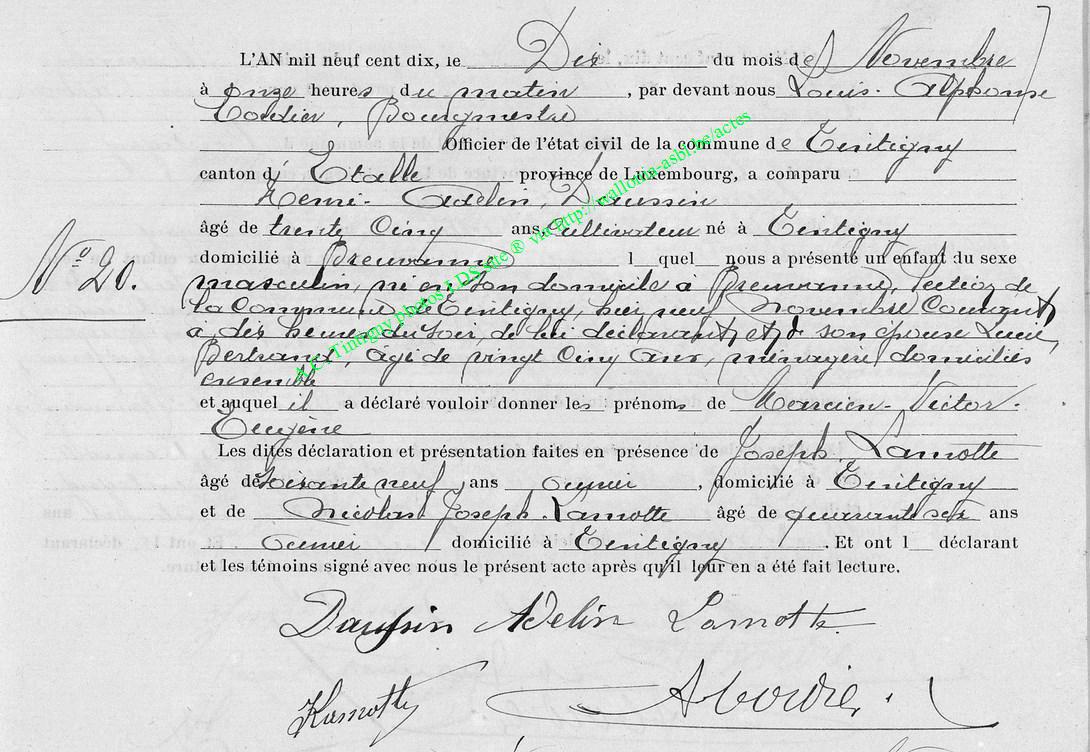 L'AN mil neuf cent dix, le Dix du mois de Novembre
à onze heures du matin, par devant nous Louis-Alphonse
Cordier, Bourgmestre
Officier de l'état civil de la commune de Tintigny
canton d'Etalle province de Luxembourg, a comparu
Remi-Adelin, Daussin
âgé de trente Cinq ans, Cultivateur né à Tintigny
domicilié à Breuvanne l quel nous a présenté un enfant du sexe
Nº 20.
masculin, né en son domicile à Breuvanne, Section de
la Commune de Tintigny, hier neuf Novembre Courant
à dix heures du soir, de lui déclarant, et d son épouse Lucie
Bertrand, âgé de vingt Cinq ans, ménagère domiciliés
ensemble
et auquel il a déclaré vouloir donner les prénoms de Marcien-Victor-
Eugène
Les dites déclaration et présentation faites en présence de Joseph Lamotte
âgé de soixante neuf ans ouvrier, domicilié à Tintigny
et de Nicolas Joseph Lamotte âgé de quarante six ans
Ouvrier domicilié à Tintigny. Et ont l déclarant
et les témoins signé avec nous le présent acte après qu'il leur en a été fait lecture.
Daussin Adelin Lamotte
Lamotte
A.C. Tintigny photos LDS site ® via http://wallonia-asbl.be/actes